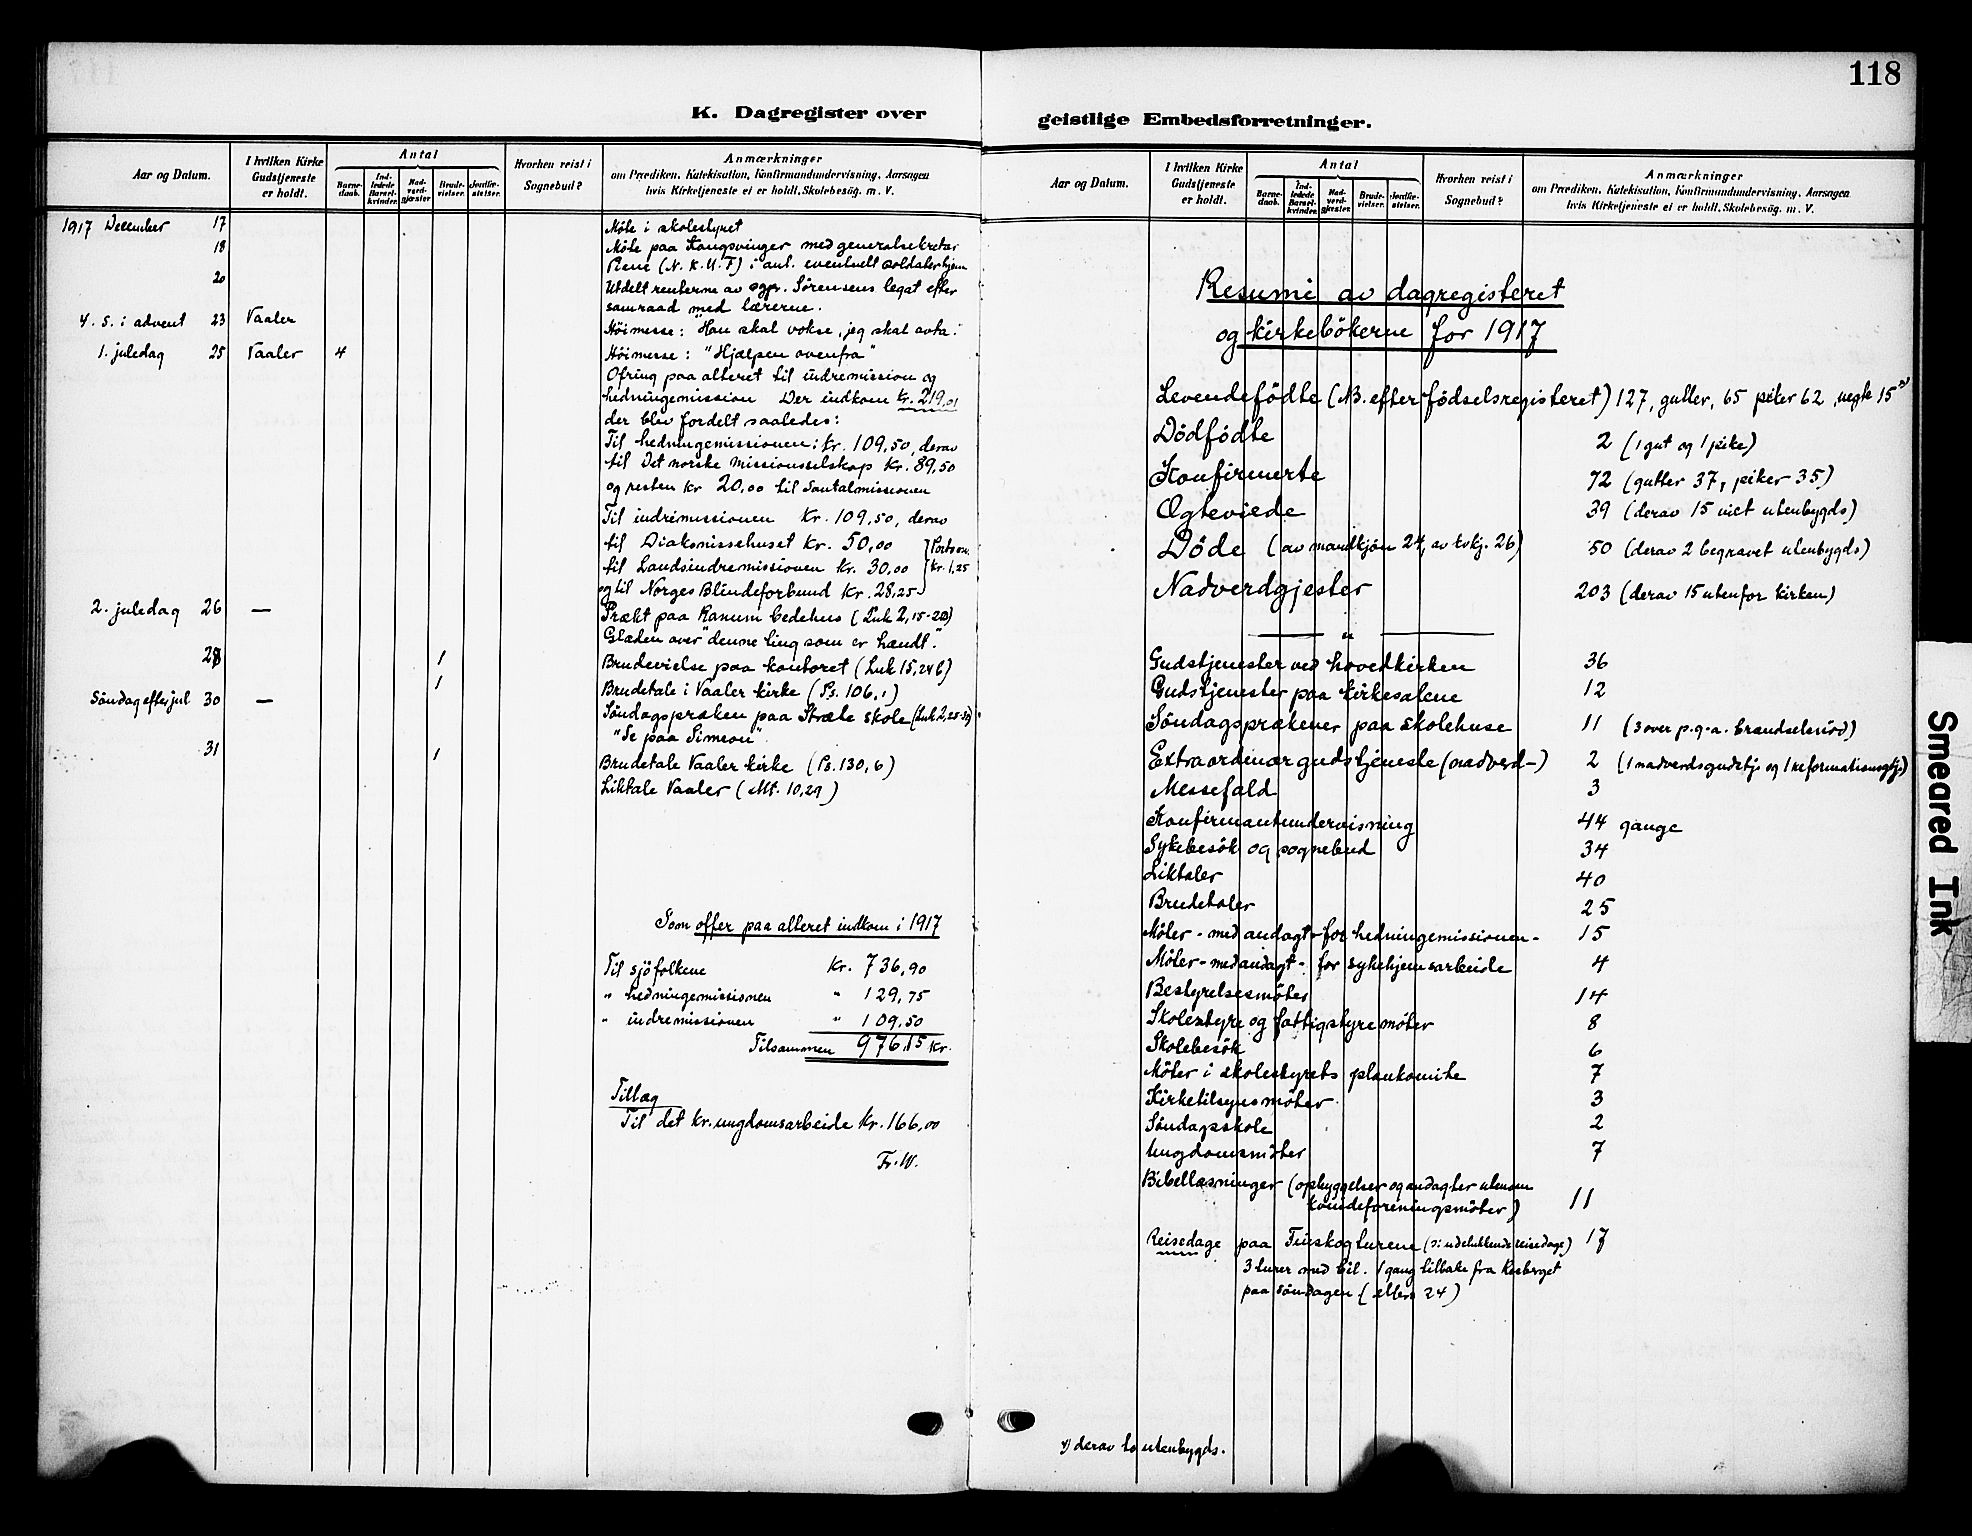 118
K. Dagregister over
geistlige Embedsforretninger.
Aar og Datum.
I hvilken Kirke Gudstjeneste er holdt.
Antal
Barne-daab.
Ind-ledede Barsel-kvinder.
Nad-verd-gjæster
Brude-vielser.
Jordfæ-stelser.
Hvorhen reist i Sognebud?
Anmærkninger
om Prædiken, Katekisation, Konfirmandundervisning, Aarsagen
hvis Kirketjeneste ei er holdt, Skolebesøg. m. V.
1917 December 17 Møte i skolestyret
18 Møte paa Kongsvinger med generalsekretær
(N.K.U.F) i anl. eventuelt soldaterhjem
20 Utdelt renterne av sgpr. Sørensens legat efter
samraad med lærerne.
4. s. i advent 23 Vaaler Höimesse: "Han skal vokse, jeg skal avta."
1. juledag 25 Vaaler 4 Höimesse: "Hjælpen ovenfra"
Ofring paa alteret til indremission og
hedningemission Der indkom kr. 219,01
der blev fordelt saaledes:
Til hedningemissionen: kr. 109,50, derav
til Det norske missionsselskap kr. 89,50
og resten kr 20,00 til Santalmissionen
Til indremissionen kr. 109,50, derav
til Diakonissehuset kr. 50,00
til Landsindremissionen kr. 30,00
og til Norges Blindeforbund kr. 28,25
Porto m. kr. 1,25
2. juledag 26 — Prækt paa Ranum bedehus (Luk 2, 15-20)
Glæden over "denne ting som er hændt."
28 1 Brudevielse paa kontoret (Luk 15,24 b)
1 Brudetale i Vaaler kirke (Ps. 106,1)
Söndag efter jul 30 — Söndagspræken paa Stræte skole (Luk 2,
"Se paa Simeon"
31 1 Brudetale Vaaler kirke (Ps. 130,6)
Liktale Vaaler (Mt. 10,29)
Som offer paa alteret indkom i 1917
Til sjöfolkene kr. 736,90
" hedningemissionen " 129,75
" indremissionen " 109,50
Tilsammen 976,15 kr.
Tillæg
Til det kr. ungdomsarbeide kr. 166,00
Fr. W.
Aar og Datum.
I hvilken Kirke Gudstjeneste er holdt.
Antal
Barne-daab.
Ind-ledede Barsel-kvinder.
Nad-verd-gjæster.
Brude-vielser.
Jordfæ-stelser.
Hvorhen reist i Sognebud?
Anmærkninger
om Prædiken, Katekisation, Konfirmandundervisning, Aarsagen
hvis Kirketjeneste ei er holdt, Skolebesøg. m. V.
Resumé av dagregisteret
og kirkebökerne for 1917
Levendefödte (NB. efter födselsregisteret) 127, gutter, 65 piker 62, uegte 15 x)
Dödfödte 2 (1 gut og 1 pike)
Konfirmerte 72 (gutter 37, piker 35)
Ægteviede 39 (derav 15 viet utenbygds)
Döde (av mandkjön 24, av kvkj. 26) 50 (derav 2 begravet utenbygds)
Nadverdgjester 203 (derav 15 utenfor kirken)
— " —
Gudstjenester ved hovedkirken 36
Gudstjenester paa kirkesalene 12
Söndagsprækener paa skolehuse 11 (3 over p.g.a. brændselsnöd)
Extraordinær gudstjeneste (nadverd-) 2 (1 nadverdsgudstj. og 1 reformationsgtj.)
Messefald 3
Konfirmantundervisning 44 gange
Sykebesök og sognebud 34
Liktaler 40
Brudetaler 25
Möter - med andagt - for hedningemissionen - 15
Möter - med andagt - for sykehjemsarbeide 4
Bestyrelsesmöter 14
Skolestyre og fattigstyremöter 8
Skolebesök 6
Möter i skolestyrets plankomite 7
Kirketilsynsmöter 3
Söndagsskole 2
Ungdomsmöter 7
Bibellæsninger (opbyggelser og andagter utenom
kvindeforeningsmöter) 11
Reisedage paa Finskogturene (ɔ: udelukkende reisedage) 17
3 turer med bil. 1 gang tilbake fra Risberget
paa söndagen (ellers 24)
x) derav to utenbygds.
Smeared Ink